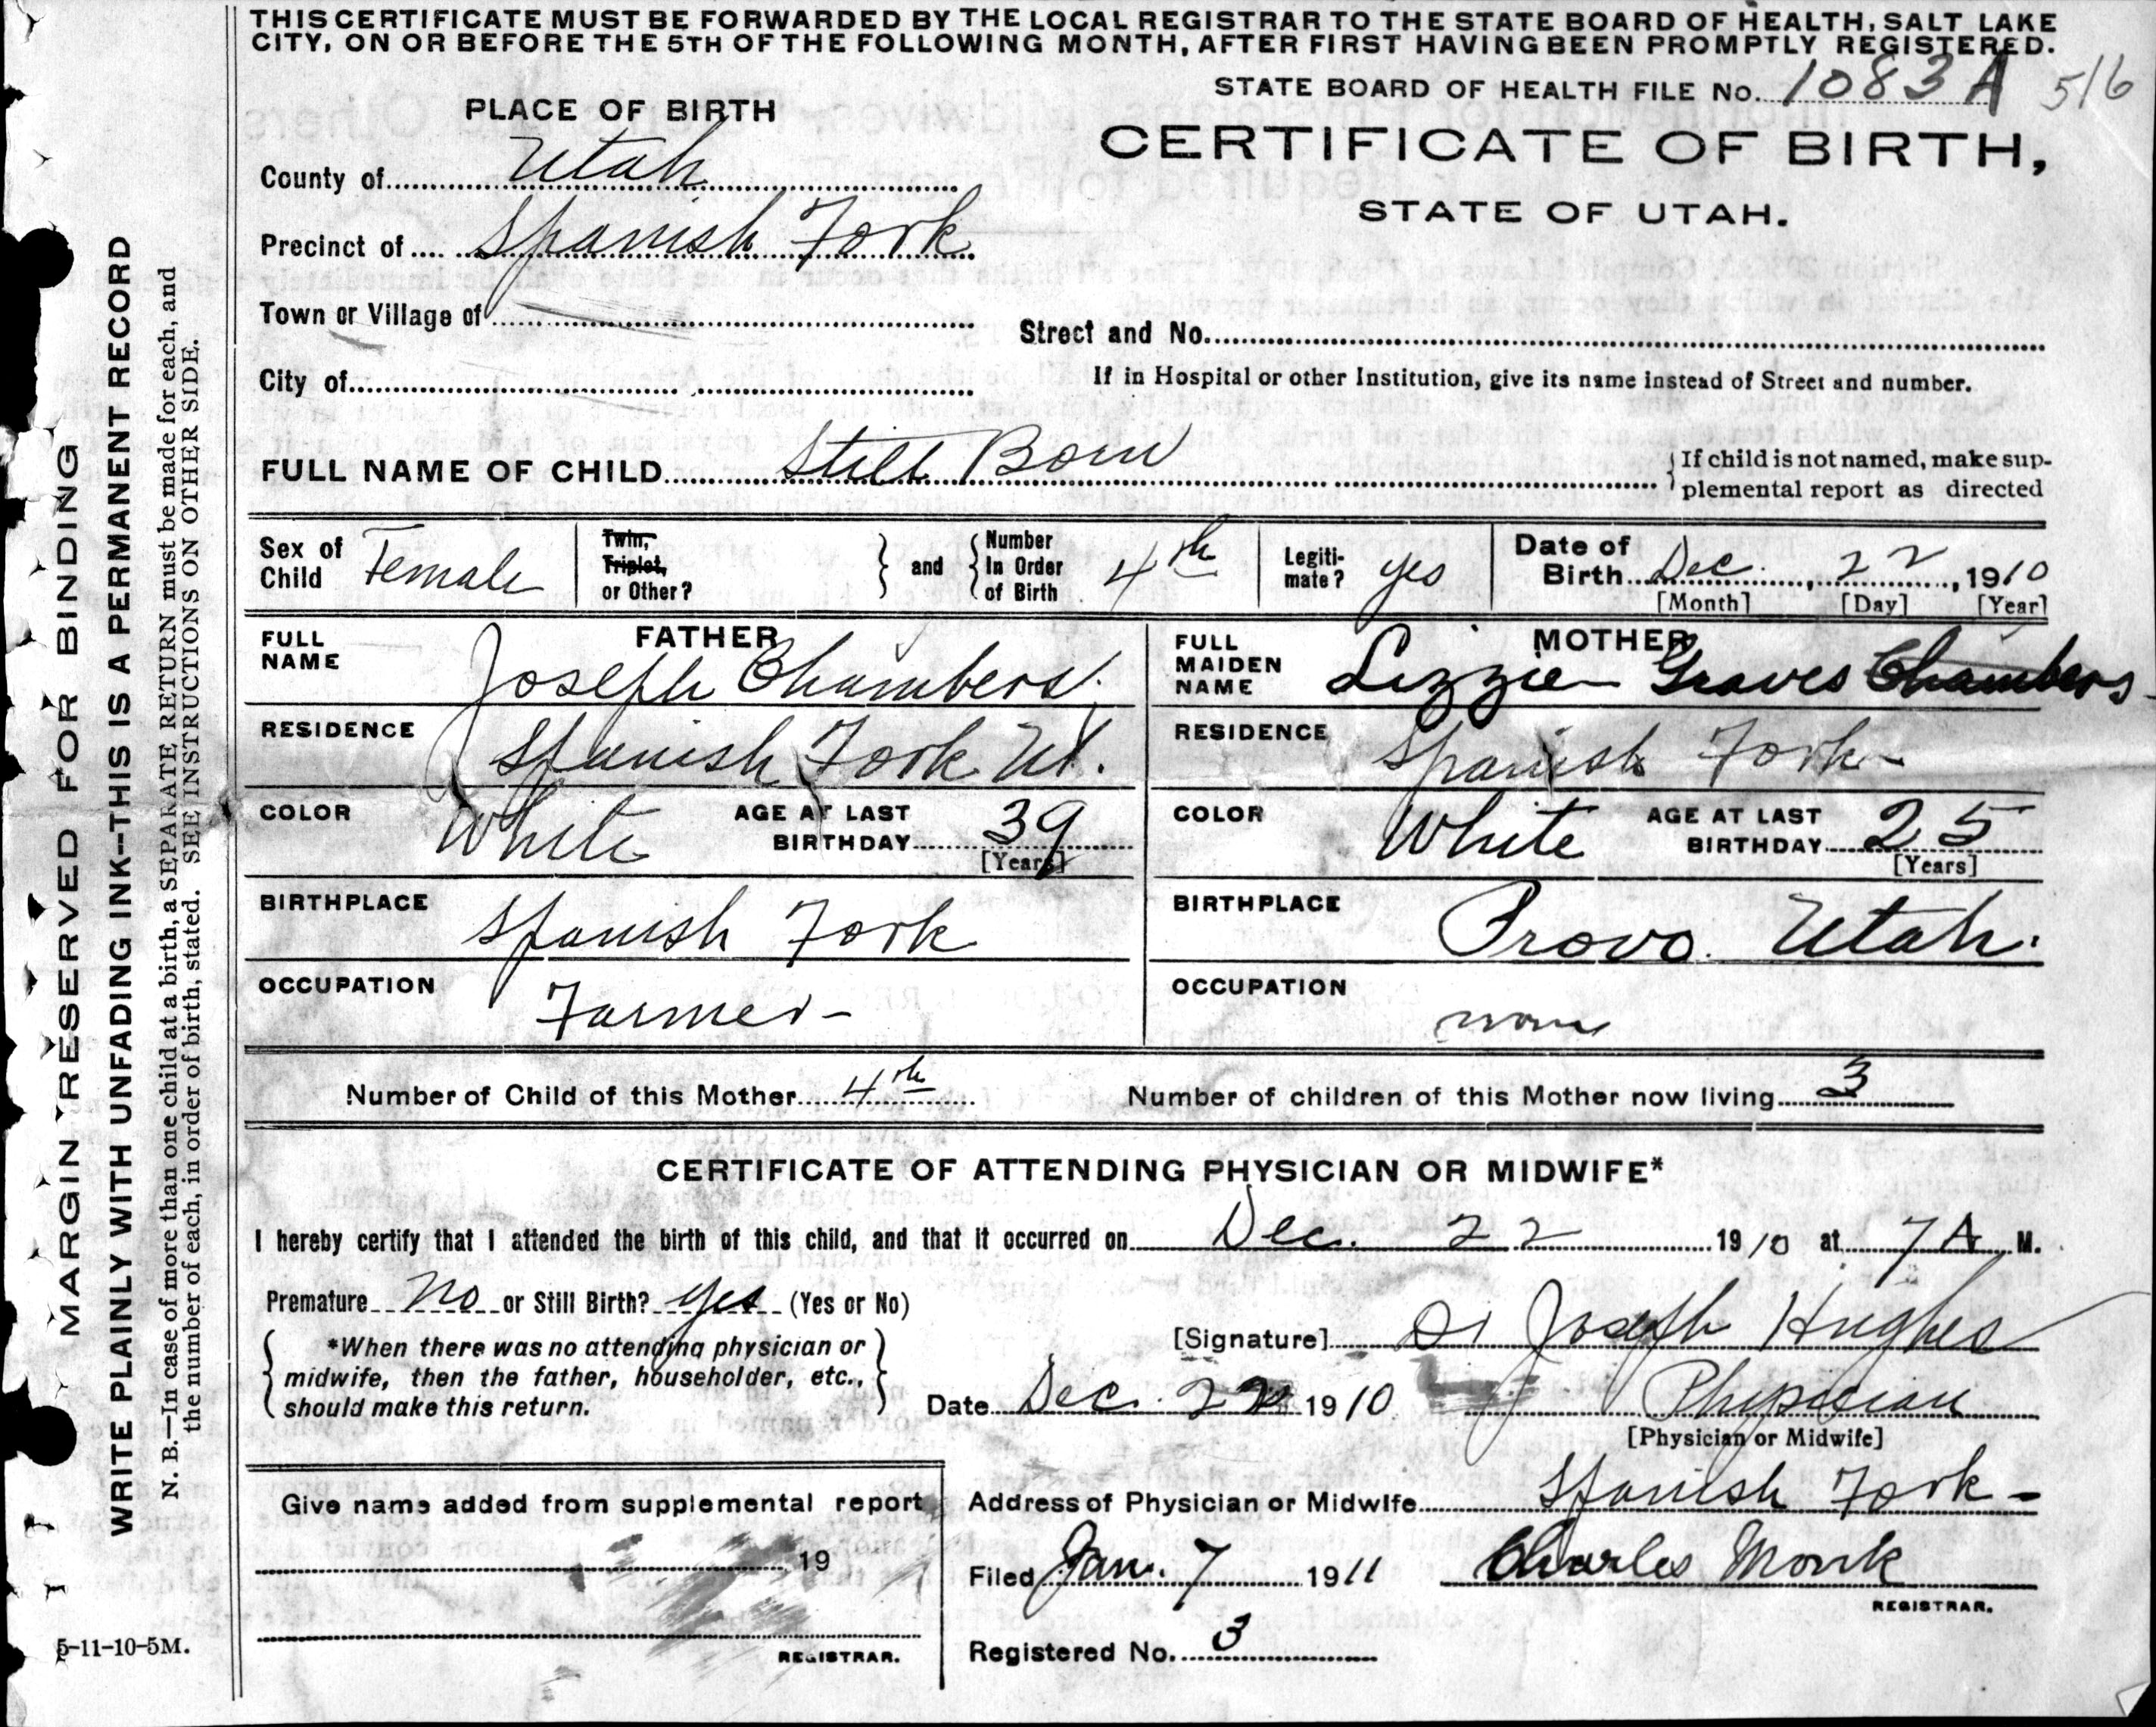 THIS CERTIFICATE MUST BE FORWARDED BY THE LOCAL REGISTRAR TO THE STATE BOARD OF HEALTH, SALT LAKE
CITY, ON OR BEFORE THE 5TH OF THE FOLLOWING MONTH, AFTER FIRST HAVING BEEN PROMPTLY REGISTERED.
STATE BOARD OF HEALTH FILE No. 1083 A 516
PLACE OF BIRTH
CERTIFICATE OF BIRTH,
STATE OF UTAH.
County of Utah
Precinct of Spanish Fork
Town or Village of
Street and No.
City of
If in Hospital or other Institution, give its name instead of Street and number.
FULL NAME OF CHILD Still Born
If child is not named, make sup-
plemental report as directed
Sex of Child Female
Twin, Triplet, or Other?
and
Number In Order of Birth 4th
Legiti-mate? yes
Date of Birth Dec. 22, 1910
[Month] [Day] [Year]
FATHER
FULL NAME Joseph Chambers.
RESIDENCE Spanish Fork Ut.
COLOR White AGE AT LAST BIRTHDAY 39
[Years]
BIRTHPLACE Spanish Fork
OCCUPATION Farmer-
MOTHER
FULL MAIDEN NAME Lizzie Graves Chambers
RESIDENCE Spanish Fork-
COLOR White AGE AT LAST BIRTHDAY 25
[Years]
BIRTHPLACE Provo. Utah.
OCCUPATION none
Number of Child of this Mother 4th Number of children of this Mother now living 3
CERTIFICATE OF ATTENDING PHYSICIAN OR MIDWIFE*
I hereby certify that I attended the birth of this child, and that it occurred on Dec. 22 1910 at 7 A M.
Premature no or Still Birth? yes (Yes or No)
*When there was no attending physician or
midwife, then the father, householder, etc.,
should make this return.
[Signature] Dr Joseph Hughes
Date Dec. 22 1910 Physician
[Physician or Midwife]
Address of Physician or Midwife Spanish Fork-
Give name added from supplemental report
19
REGISTRAR.
Filed Jan. 7 1911 Charles Monk
REGISTRAR.
Registered No. 3
MARGIN RESERVED FOR BINDING
WRITE PLAINLY WITH UNFADING INK--THIS IS A PERMANENT RECORD
N. B.—In case of more than one child at a birth, a SEPARATE RETURN must be made for each, and
the number of each, in order of birth, stated. SEE INSTRUCTIONS ON OTHER SIDE.
5-11-10-5M.